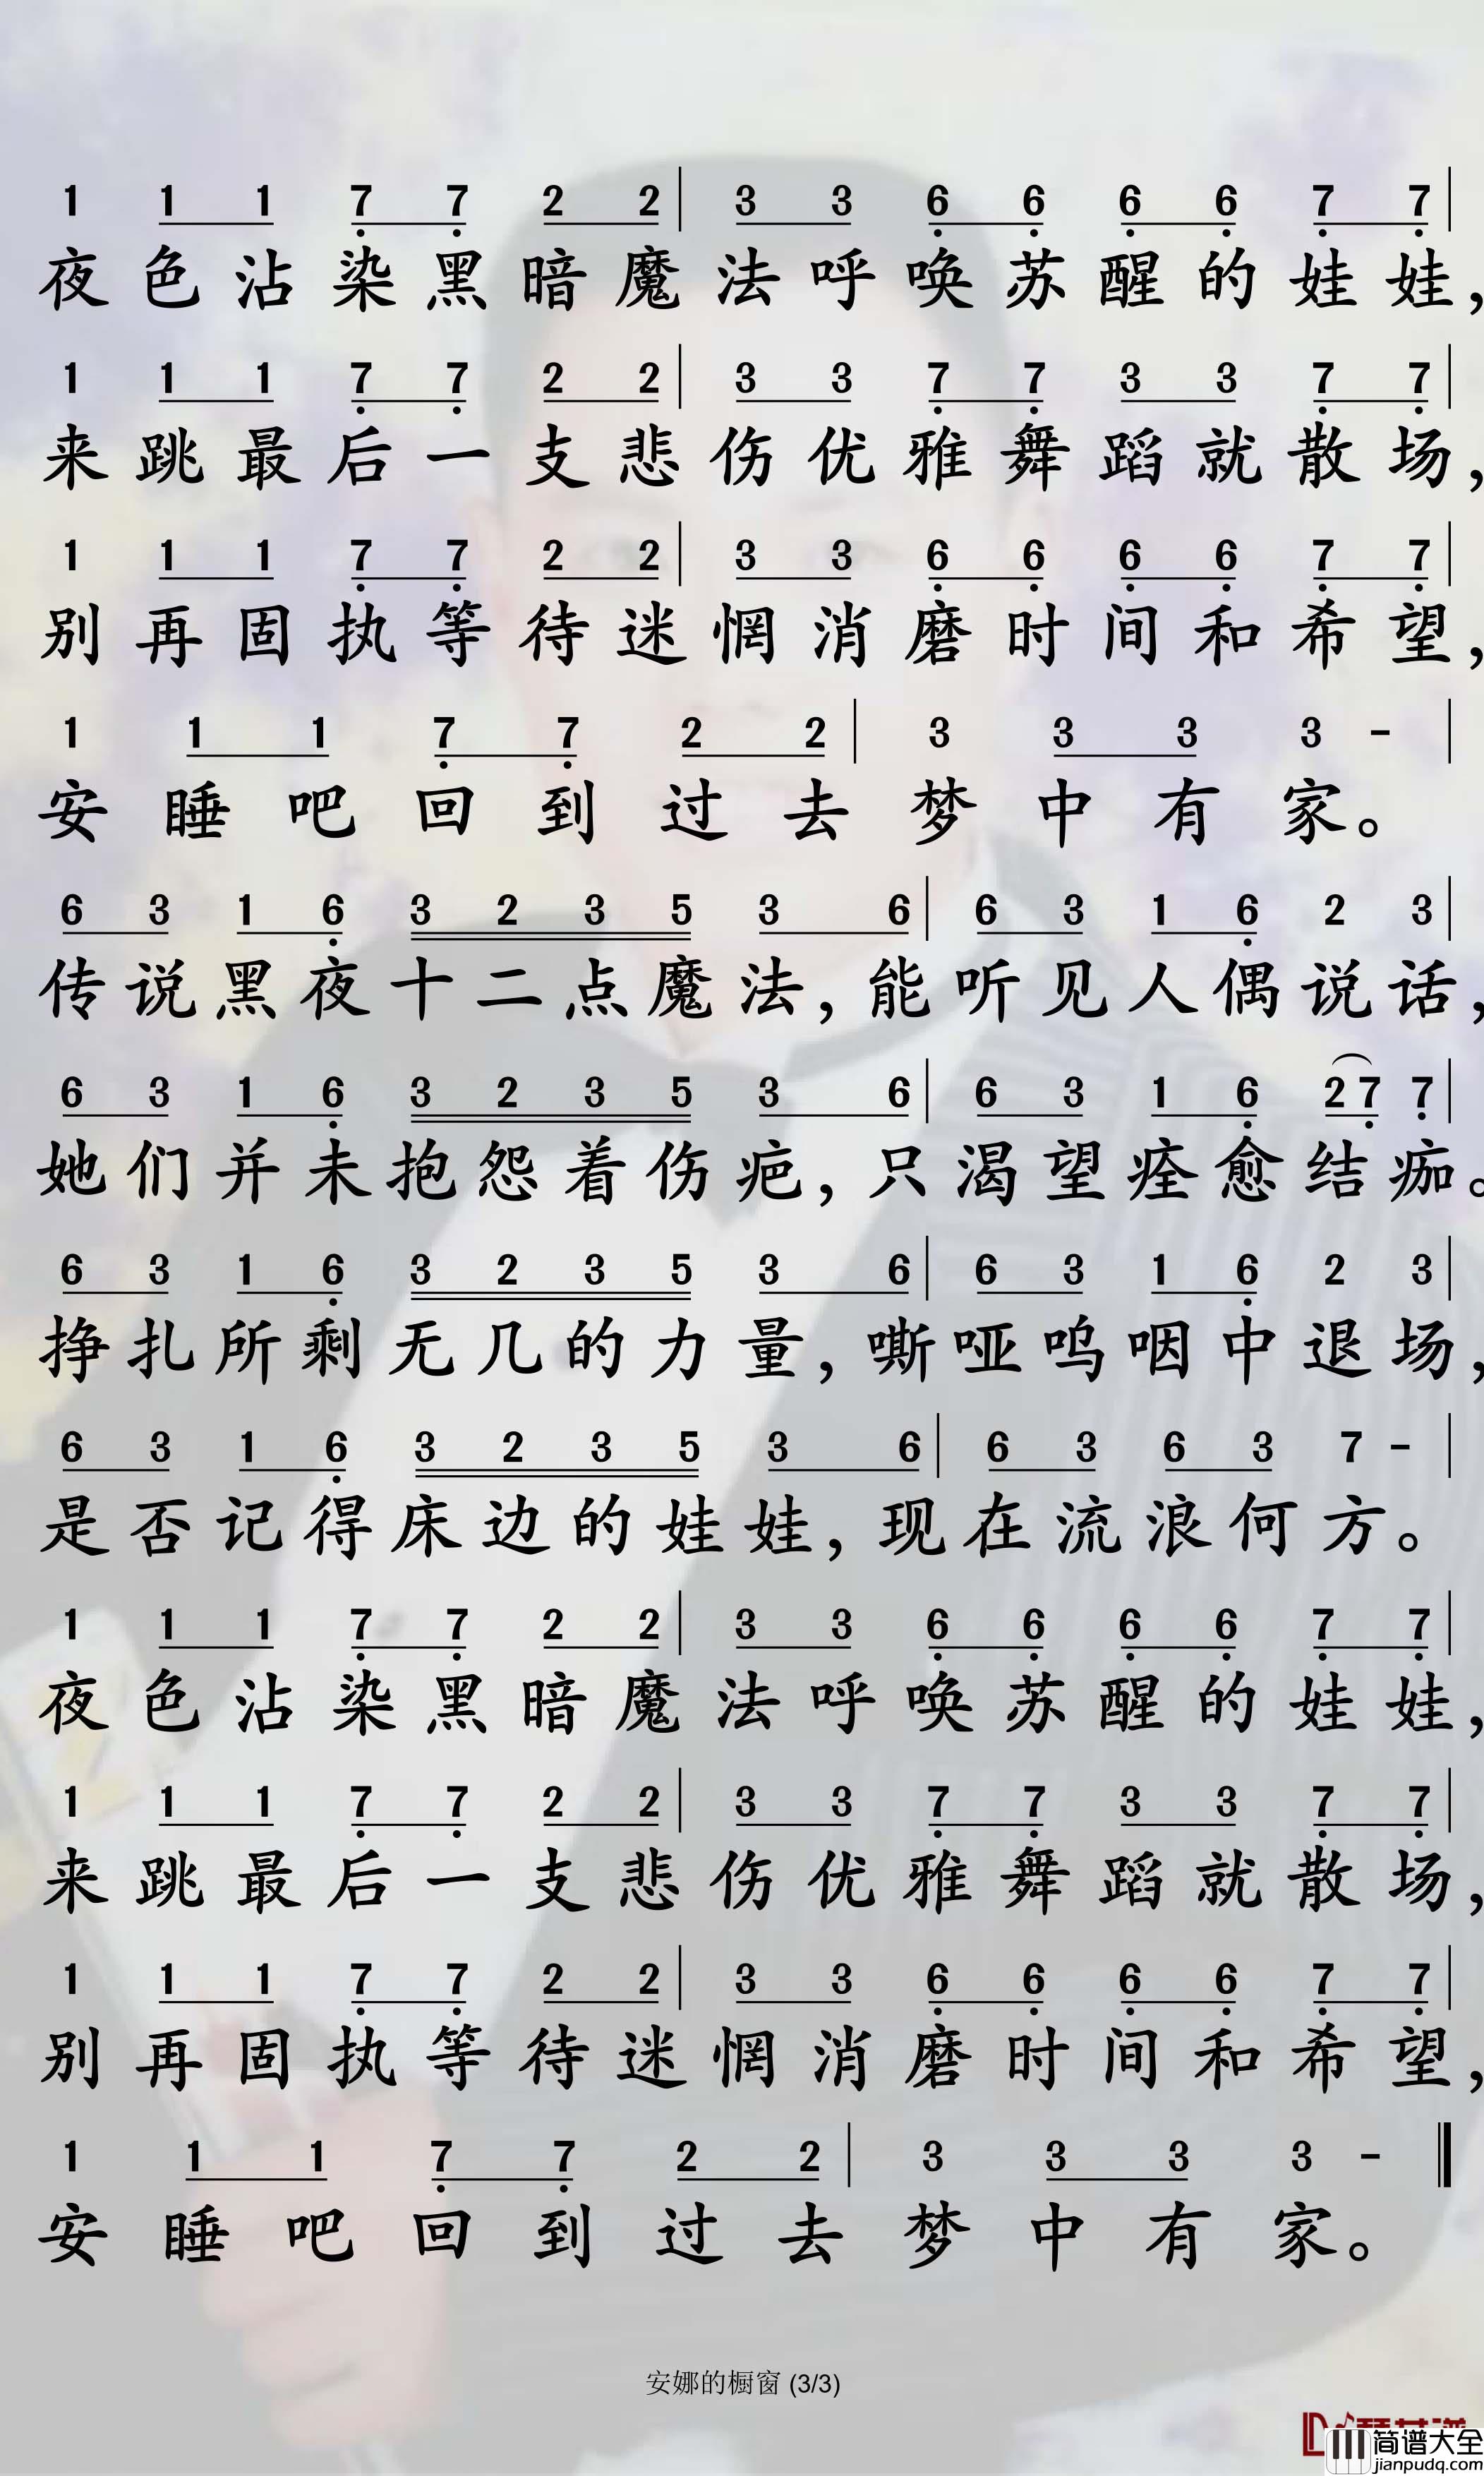 1 1 1 7 7 2 2 | 3 3 6 6 6 6 7 7 |
夜色沾染黑暗魔法呼唤苏醒的娃娃，
1 1 1 7 7 2 2 | 3 3 7 7 3 3 7 7 |
来跳最后一支悲伤优雅舞蹈就散场，
1 1 1 7 7 2 2 | 3 3 6 6 6 6 7 7 |
别再固执等待迷惘消磨时间和希望，
1 1 1 7 7 2 2 | 3 3 3 3 - |
安睡吧回到过去梦中有家。
6 3 1 6 3 2 3 5 3 6 | 6 3 1 6 2 3 |
传说黑夜十二点魔法，能听见人偶说话，
6 3 1 6 3 2 3 5 3 6 | 6 3 1 6 2 7 7 |
她们并未抱怨着伤疤，只渴望痊愈结痂。
6 3 1 6 3 2 3 5 3 6 | 6 3 1 6 2 3 |
挣扎所剩无几的力量，嘶哑呜咽中退场，
6 3 1 6 3 2 3 5 3 6 | 6 3 6 3 7 - |
是否记得床边的娃娃，现在流浪何方。
1 1 1 7 7 2 2 | 3 3 6 6 6 6 7 7 |
夜色沾染黑暗魔法呼唤苏醒的娃娃，
1 1 1 7 7 2 2 | 3 3 7 7 3 3 7 7 |
来跳最后一支悲伤优雅舞蹈就散场，
1 1 1 7 7 2 2 | 3 3 6 6 6 6 7 7 |
别再固执等待迷惘消磨时间和希望，
1 1 1 7 7 2 2 | 3 3 3 3 - ‖
安睡吧回到过去梦中有家。
安娜的橱窗 (3/3)
简谱大全
jianpudq.com